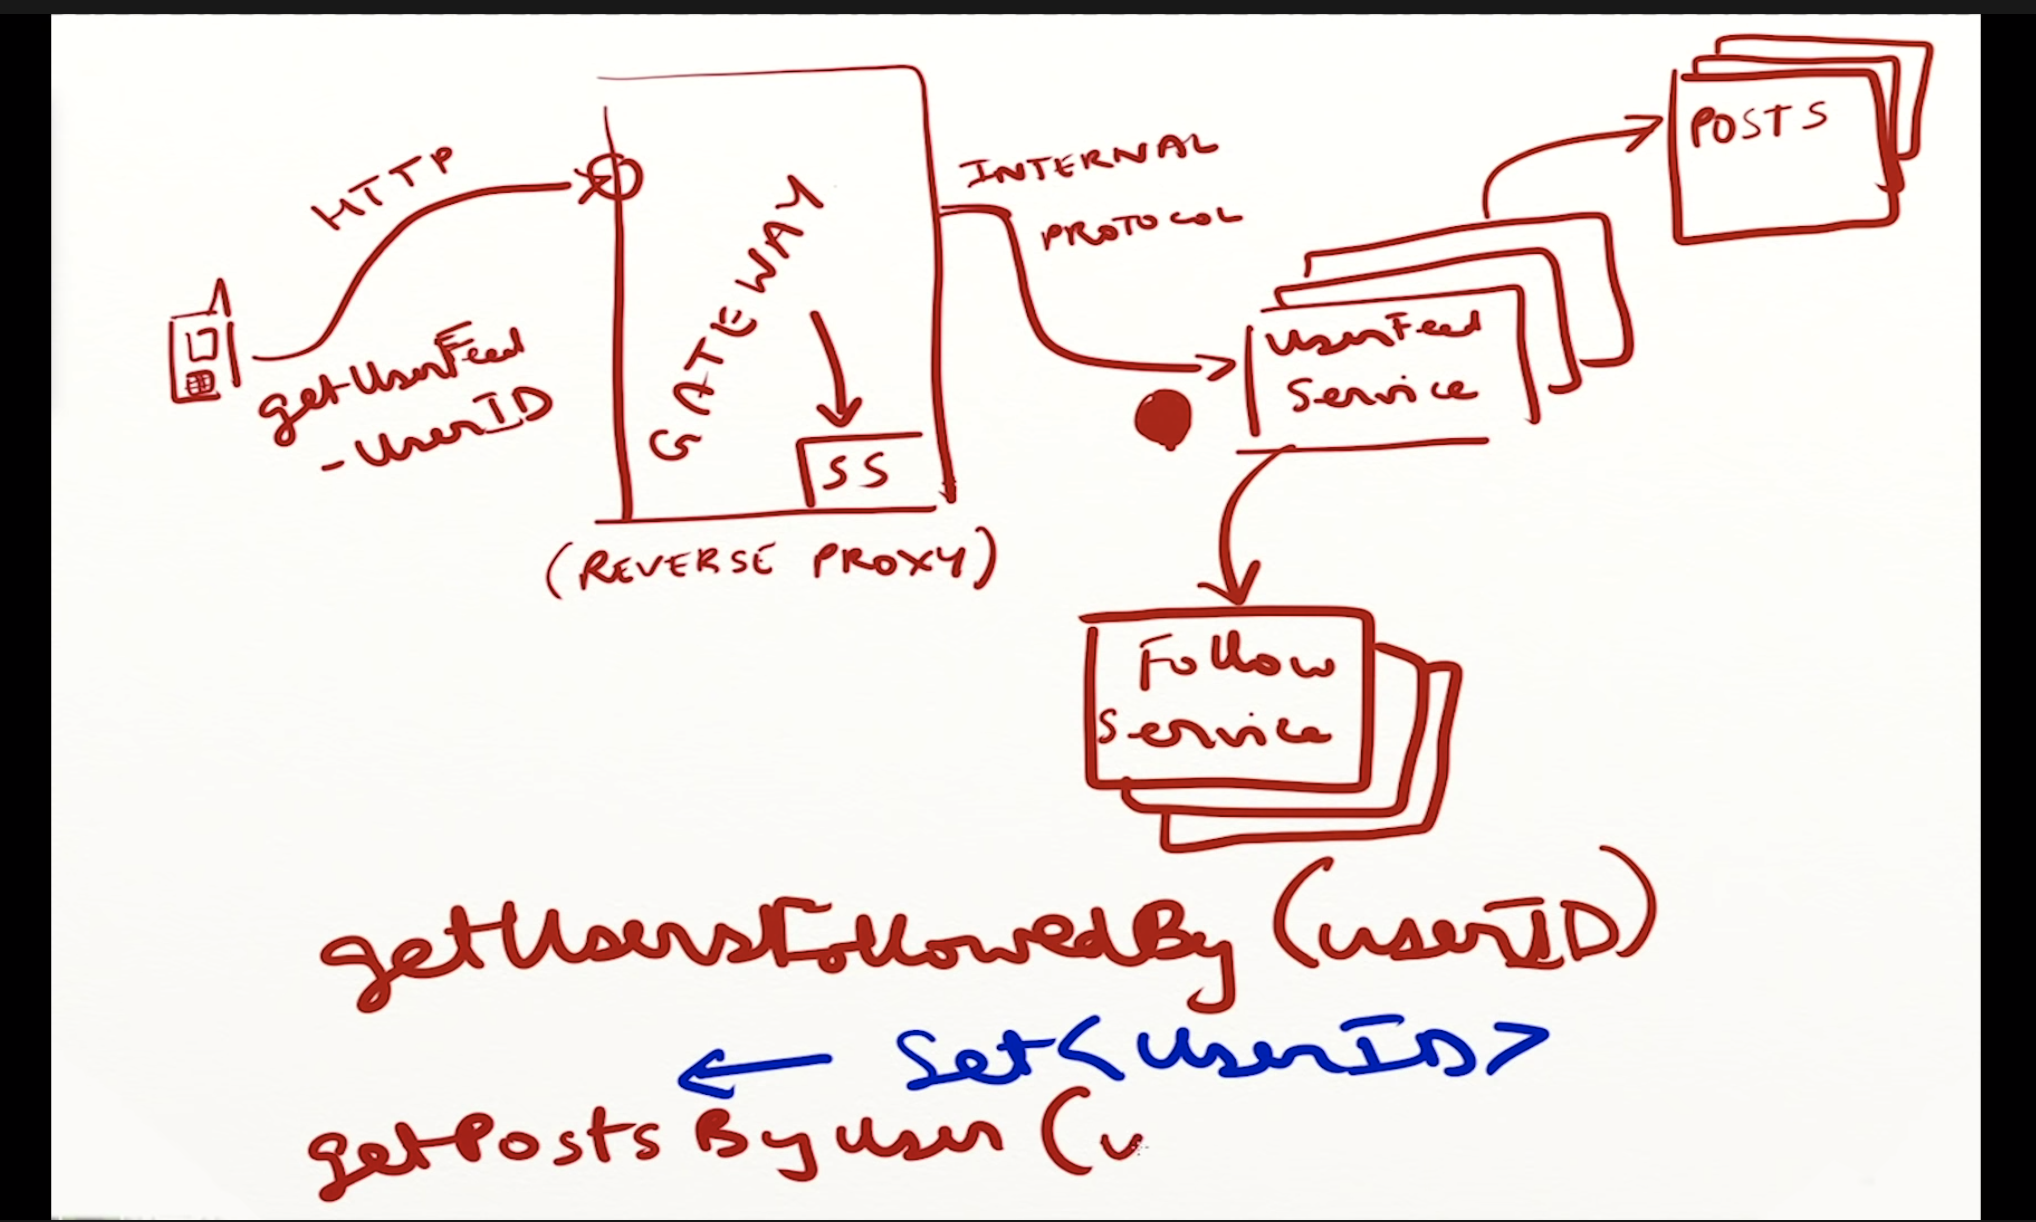 HTTP
getUserFeed
- UserID
GATEWAY
SS
(REVERSE PROXY)
INTERNAL
PROTOCOL
UserFeed
Service
POSTS
Follow
Service
getUsersFollowedBy (userID)
← Set<UserID>
getPostsByUser (u